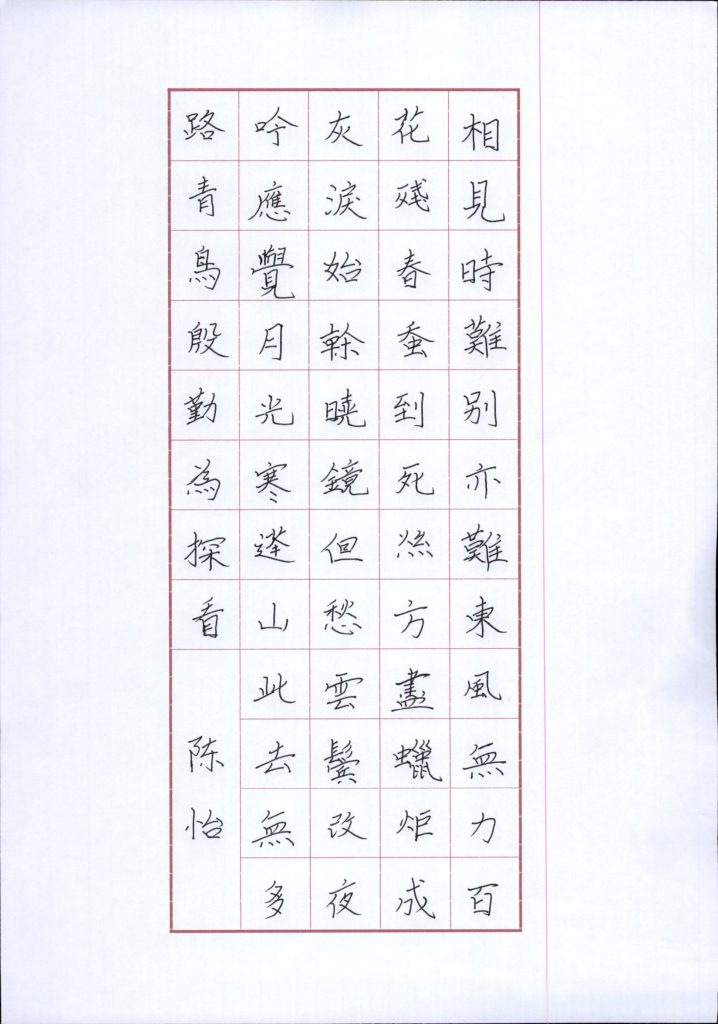 相見時難別亦難東風無力百
花殘春蚕到死絲方盡蠟炬成
灰淚始幹曉鏡但愁雲鬓改夜
吟應覺月光寒蓬山此去無多
路青鳥殷勤為探看
陈怡